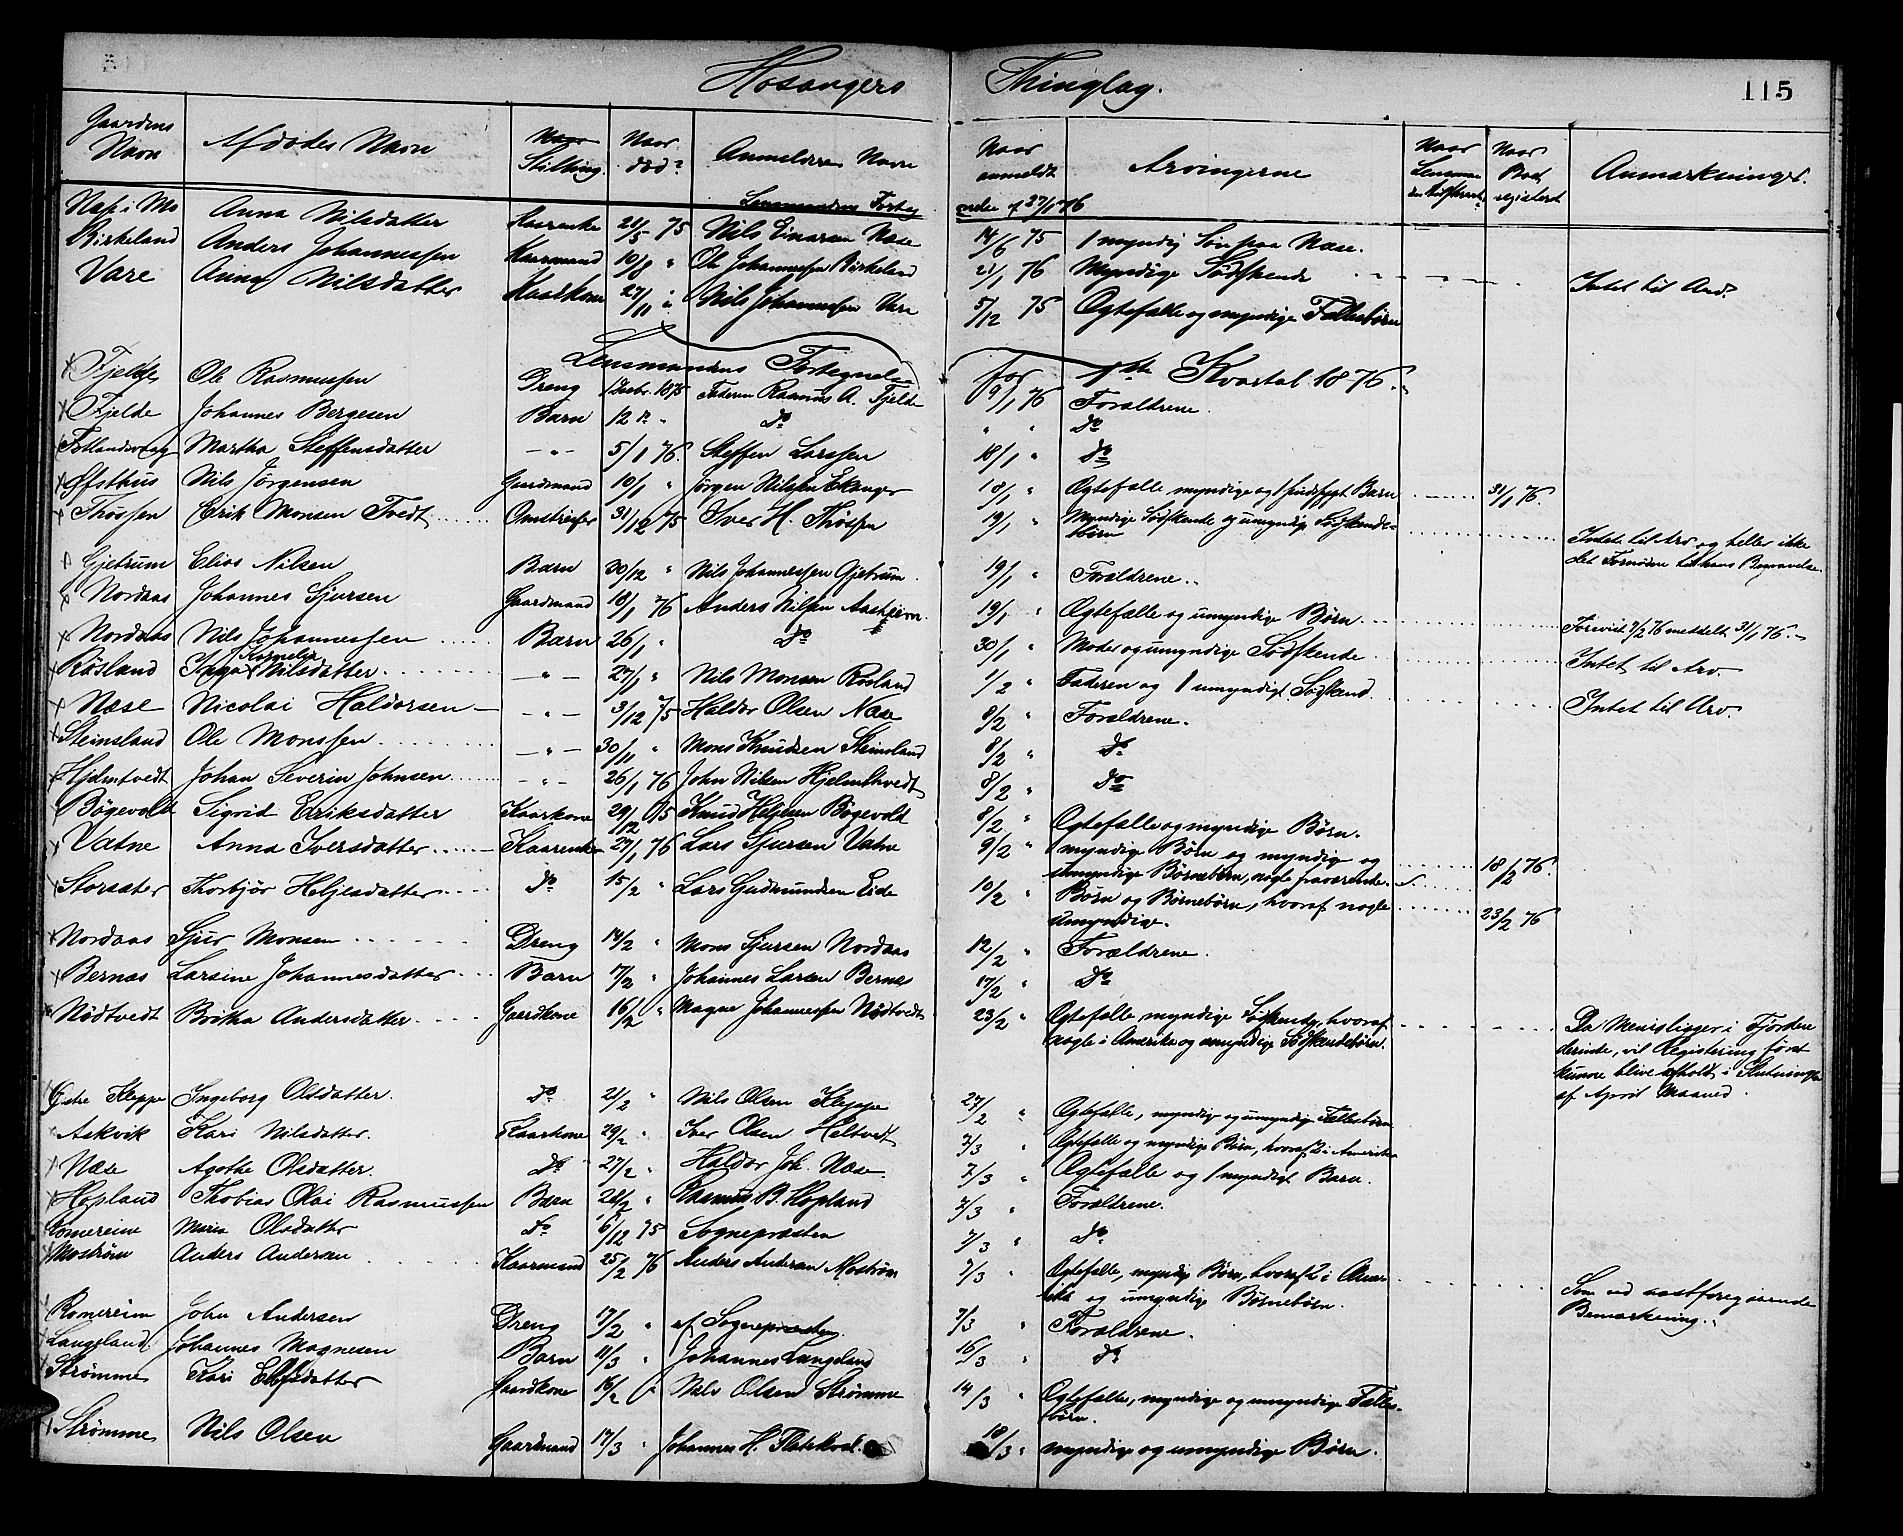 Hosangers Thinglag. 115
Gaardens Navn Afdødes Navn Stilling Naar død Anmelderens Navn Naar anmeldt Arvingerne Naar Boet registert Anmærkninger.
Lensmandens Forteg 27/1 76
Næse i Mo Anna Nilsdatter Kaarenke 21/5 75 Nils Einarsen Næse 14/6 75 1 myndig Søn paa Næse.
Birkeland Anders Johannessen Kaarmand 10/8 " Ole Johannessen Birkeland 21/1 76 Myndige Sødskende Intet til Arv.
Vare Anna Nilsdatter Kaarkone 27/11 " Nils Johannessen Vare 5/12 75 Ægtefælle og myndige Fællesbørn
Lensmandens Fortegnelse for 1ste Kvartal 1876.
Fjelde Ole Rasmussen Dreng 1 Decbr. 1875 Faderen Rasmus A. Fjelde 9/1 76 Forældrene.
Fjelde Johannes Bergesen Barn 12 " " Do " " Do
Fotlandsvaag Martha Steffensdatter - " - 5/1 76. Steffen Larssen 18/1 " Do
Øfsthus Nils Jørgensen Gaardmand 10/1 " Jørgen Nilsen Ekanger 18/1 " Ægtefælle myndige og 1 Barn 31/1 76.
Thøssen Erik Monsen Tvedt Omstreifer 31/12 75 Iver H. Thøssen 19/1 " Myndige Sødskende og umyndig Sødskende-
børn Intet til Arv og heller ikke
det Fornødne til hans Begravelse.
Gjetrum Elias Nilsen Barn 30/12 " Nils Johannessen Gjetrum. 19/1 " Forældrene.
Nordaas Johannes Sjursen Gaardmand 18/1 76 Anders Nilsen Aasheim 19/1 " Ægtefælle og umyndige Børn. Forevist 7/2 76 meddelt 31/1 76.
Nordaas Nils Johannessen Barn 26/1 " Do 30/1 " Moder og umyndige Sødskende Intet til Arv.
Kornelia
Røsland Inga Nilsdatter - " - 27/1 " Nils Monsen Røsland 1/2 " Faderen og 1 umyndigt Sødskend. Intet til Arv.
Næse Nicolai Haldorsen - " - 3/12 75 Haldor Olsen Næse 8/2 " Forældrene.
Steinsland Ole Monssen - " - 30/11 " Mons Knudsen Steinsland 8/2 " Do
Hjelmtvedt Johan Severin Johnsen - " - 26/1 76 John Nilsen Hjelmtvedt 8/2 " Do
Bøgevold Sigrid Eriksdatter Kaarkone 29/12 75 Knud Helgesen Bøgevold 8/2 " Ægtefælle og myndige Børn.
Vatne Anna Iversdatter Kaarenke 27/1 76 Lars Sjursen Vatne 9/2 " myndige Børn og myndige og
umyndige Børnebørn, nogle fraværende. 18/2 76.
Storsæter Thorbjør Helgesdatter Do 15/2 " Lars Gudmundsen Eide 10/2 " Børn og Børnebørn, hvoraf nogle
umyndige. 23/2 76
Nordaas Sjur Monsen Dreng 14/2 " Mons Sjursen Nordaas 12/2 " Forældrene.
Bernæs Larsine Johannesdatter Barn 7/2 " Johannes Larsen Bernes 17/2 " Do
Nødtvedt Brita Andersdatter Gaardkone 16/2 " Magne Johannessen Nødtvedt 23/2 " Ægtefælle myndige Sødskende, hvoraf
nogle i Amerika og umyndige Sødskendebørn. Da Menisligger i Fjordene
derinde, vil Registering først
kunne blive afholdt i Slutningen
af April Maaned.
Østre Kleppe Ingeborg Olsdatter Do 21/2 " Nils Olsen Kleppe 27/2 " Ægtefælle, myndig og umyndig Fællesbørn
Askvik Kari Nilsdatter. Kaarkone 29/2 " Iver Olsen Heltvedt 3/3 " Ægtefælle og myndige Børn, hvoraf 2 i Amerika
Næse Agathe Olsdatter. Do 27/2 " Haldor Joh. Næse 7/3 " Ægtefælle og 1 myndigt Barn.
Hopland Thobias Olai Rasmussen Barn 28/2 " Rasmus B. Hopland 7/3 " Forældrene.
Romereim Marie Olsdatter Do 6/12 75 Sognepræsten 7/3 " Do
Mostrøm Anders Andersen Kaarmand 25/2 76 Anders Andersen Mostrøm 7/3 " Ægtefælle, myndig Børn, hvoraf 2 i Ame-
rika og umyndige Børnebørn. Som ved næstforegaaende
Bemærkning.
Romereim John Andersen Dreng 17/2 " af Sognepræsten. 7/3 " Forældrene.
Langeland Johannes Magnesen Barn 11/3 " Johannes Langeland 16/3 " Do
Strømme Kari Elisdatter Gaardkone 16/2 " Nils Olsen Strømme 14/3 " Ægtefælle, myndige og umyndige Fælles-
børn.
Strømme Nils Olsen Gaardmand 17/3 " Johannes H. 18/3 " myndige og umyndige Børn.